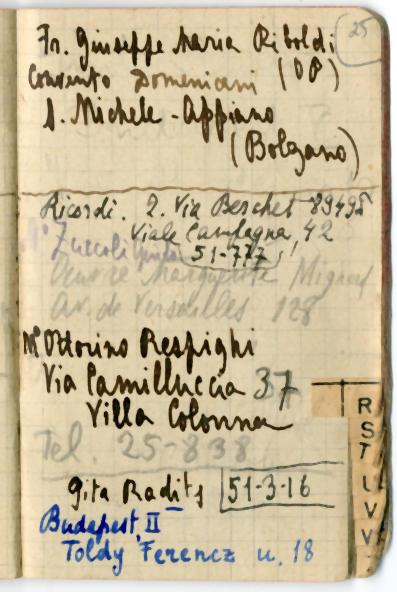 25
Fr. Giuseppe Maria Riboldi
Convento Domenicani (OP)
S. Michele - Appiano
(Bolzano)
Ricordi. 2. Via Berchet 89498
Viale Campagna, 42
Mº Zuccoli Guido 51-777
Oeuvre Marguerite
Av. de Versailles 128
Mº Ottorino Respighi
Via Camilluccia 37
Villa Colonna
Tel. 25-838
Gita Radits 51-3-16
Budapest, II
Toldy Ferencz u. 18
R
S
T
U
V